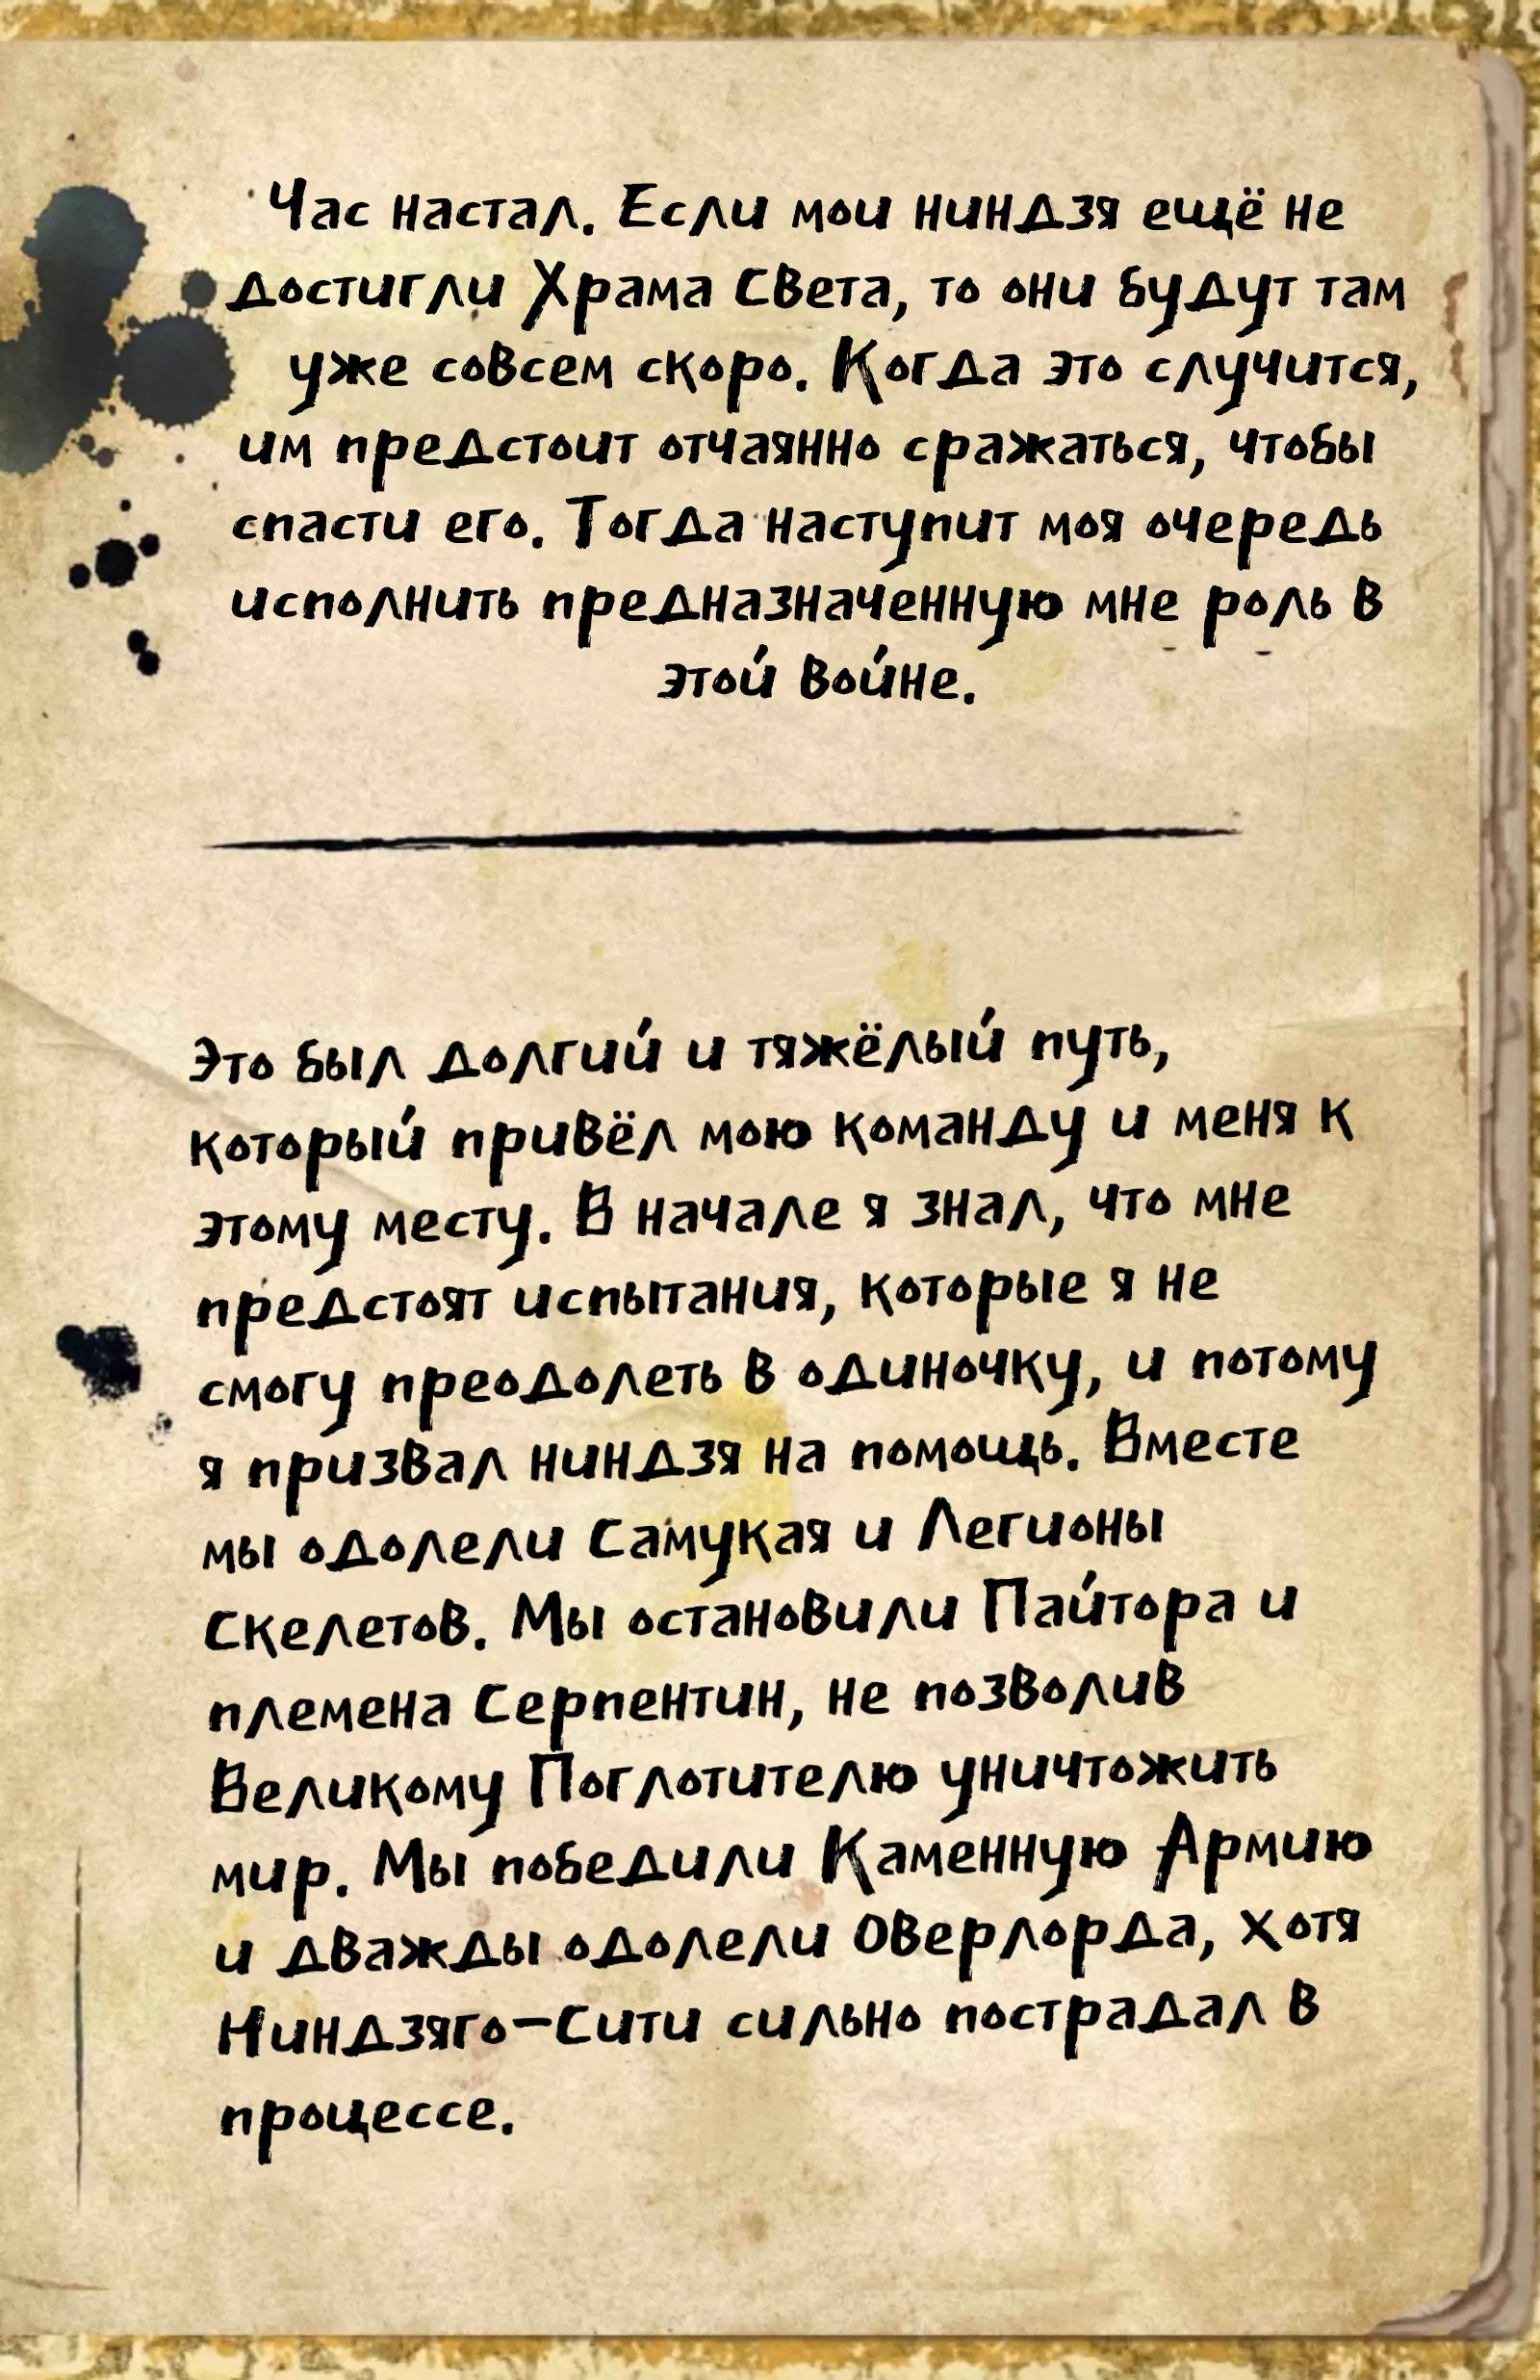 Час настал. Если мои ниндзя ещё не
достигли Храма Света, то они будут там
уже совсем скоро. Когда это случится,
им предстоит отчаянно сражаться, чтобы
спасти его. Тогда наступит моя очередь
исполнить предназначенную мне роль в
этой войне.
Это был долгий и тяжёлый путь,
который привёл мою команду и меня к
этому месту. В начале я знал, что мне
предстоят испытания, которые я не
смогу преодолеть в одиночку, и потому
я призвал ниндзя на помощь. Вместе
мы одолели Самукая и Легионы
Скелетов. Мы остановили Пайтора и
племена Серпентин, не позволив
Великому Поглотителю уничтожить
мир. Мы победили Каменную Армию
и дважды одолели Оверлорда, хотя
Ниндзяго-Сити сильно пострадал в
процессе.